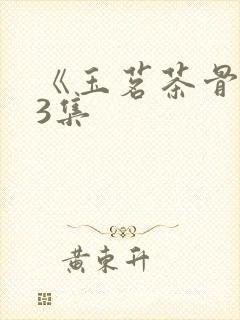 《玉茗茶骨
3集
黄东升